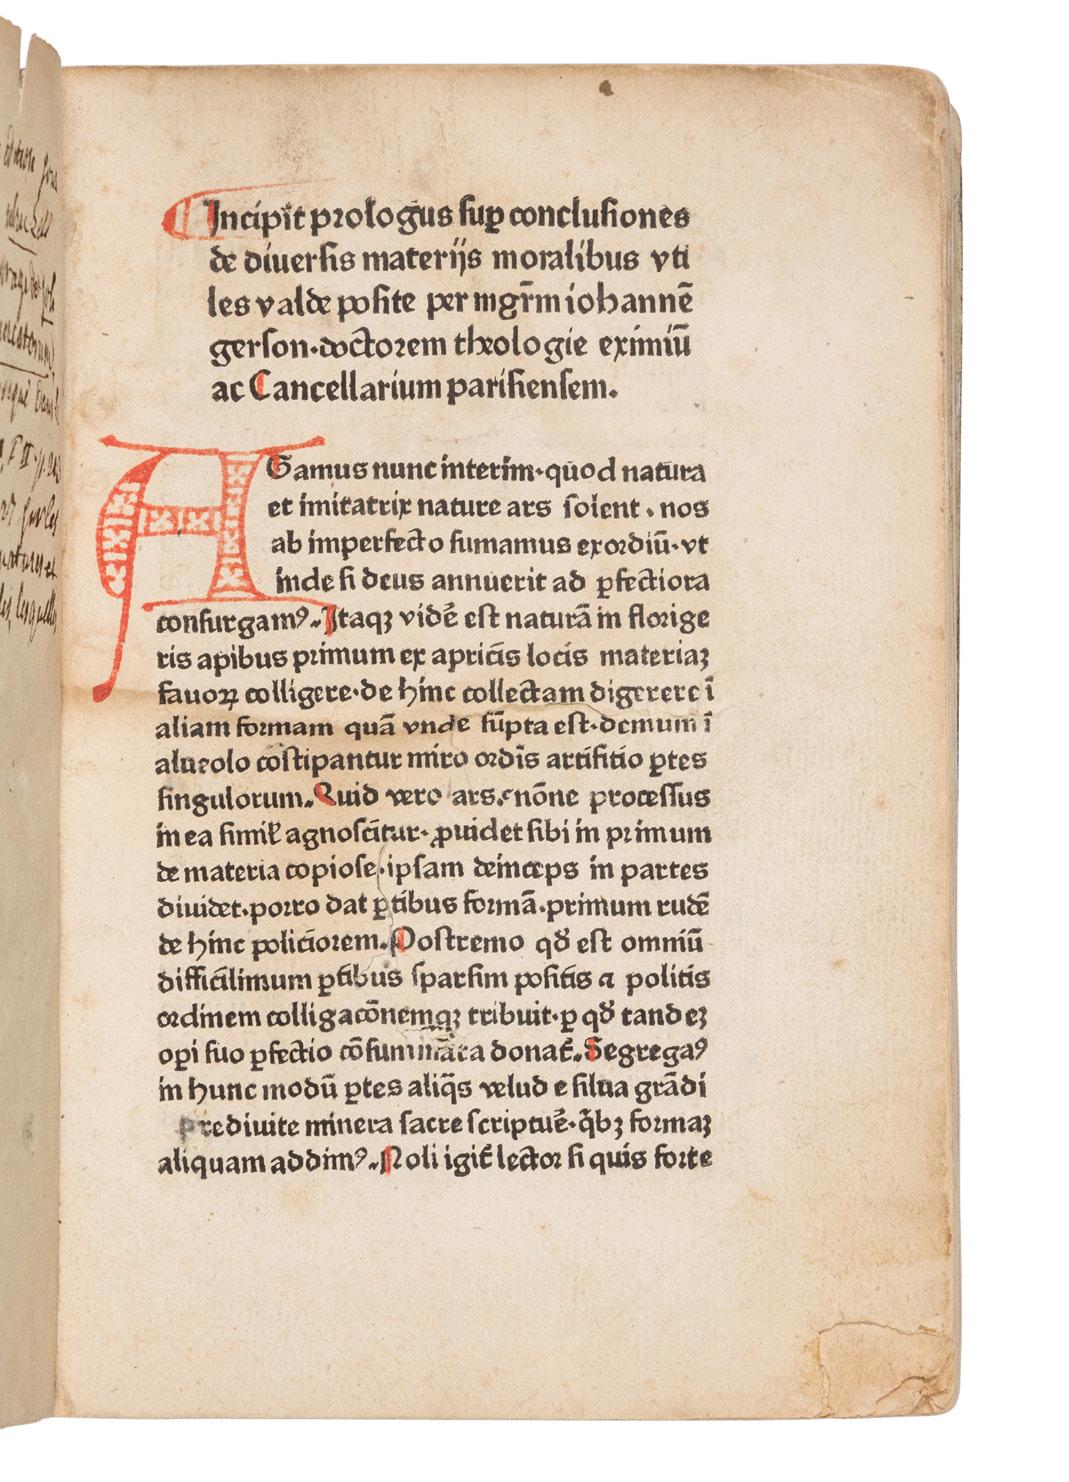 Incipit prologus suꝑ conclusiones
de diuersis materijs moralibus vti
les valde posite per mgr̄m iohannē
gerson·doctorem theologie eximiū
ac Cancellarium parisiensem.
AGamus nunc interim·quod natura
et imitatrix nature ars solent·nos
ab imperfecto sumamus exordiū·vt
inde si deus annuerit ad ꝑfectiora
consurgamꝰ. Itaqꝫ vidē est naturā in florige
ris apibus primum ex apricis locis materiaꝫ
fauoꝝ colligere·de hinc collectam digerere ī
aliam formam quā vnde sūpta est·demum ī
alueolo cōstipantur miro ordīs artifitio ꝑtes
singulorum. Quid vero ars·nōne processus
in ea simil̄ agnoscitur·ꝓuidet sibi in primum
de materia copiose·ipsam deinceps in partes
diuidet·porro dat ꝑtibus formā·primum rudē
de hinc policiorem. Postremo qđ est omniū
difficilimum ꝑtibus sparsim positis ⁊ politis
ordinem colligacōnemqꝫ tribuit·ꝑ qđ tandeꝫ
opi suo ꝑfectio cōsummata donat̄. Segregaꝰ
in hunc modū ꝑtes aliq̄s velud e silua grādi
predivite minera sacre scriptuē·q̄bꝫ formaꝫ
aliquam addimꝰ. Noli igit̄ lector si quis forte